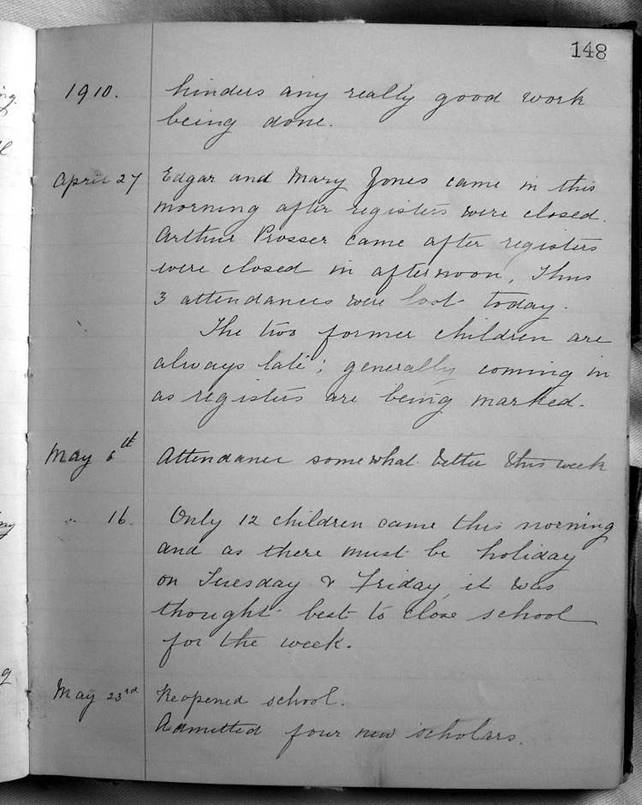 148
1910. hinders any really good work
being done.
April 27 Edgar and Mary Jones came in this
morning after registers were closed.
Arthur Prosser came after registers
were closed in afternoon, Thus
3 attendances were lost today.
The two former children are
always late; generally coming in
as registers are being marked.
May 6th Attendance somewhat better this week
" 16. Only 12 children came this morning
and as there must be holiday
on Tuesday & Friday it was
thought best to close school
for the week.
May 23rd Reopened school.
Admitted four new scholars.